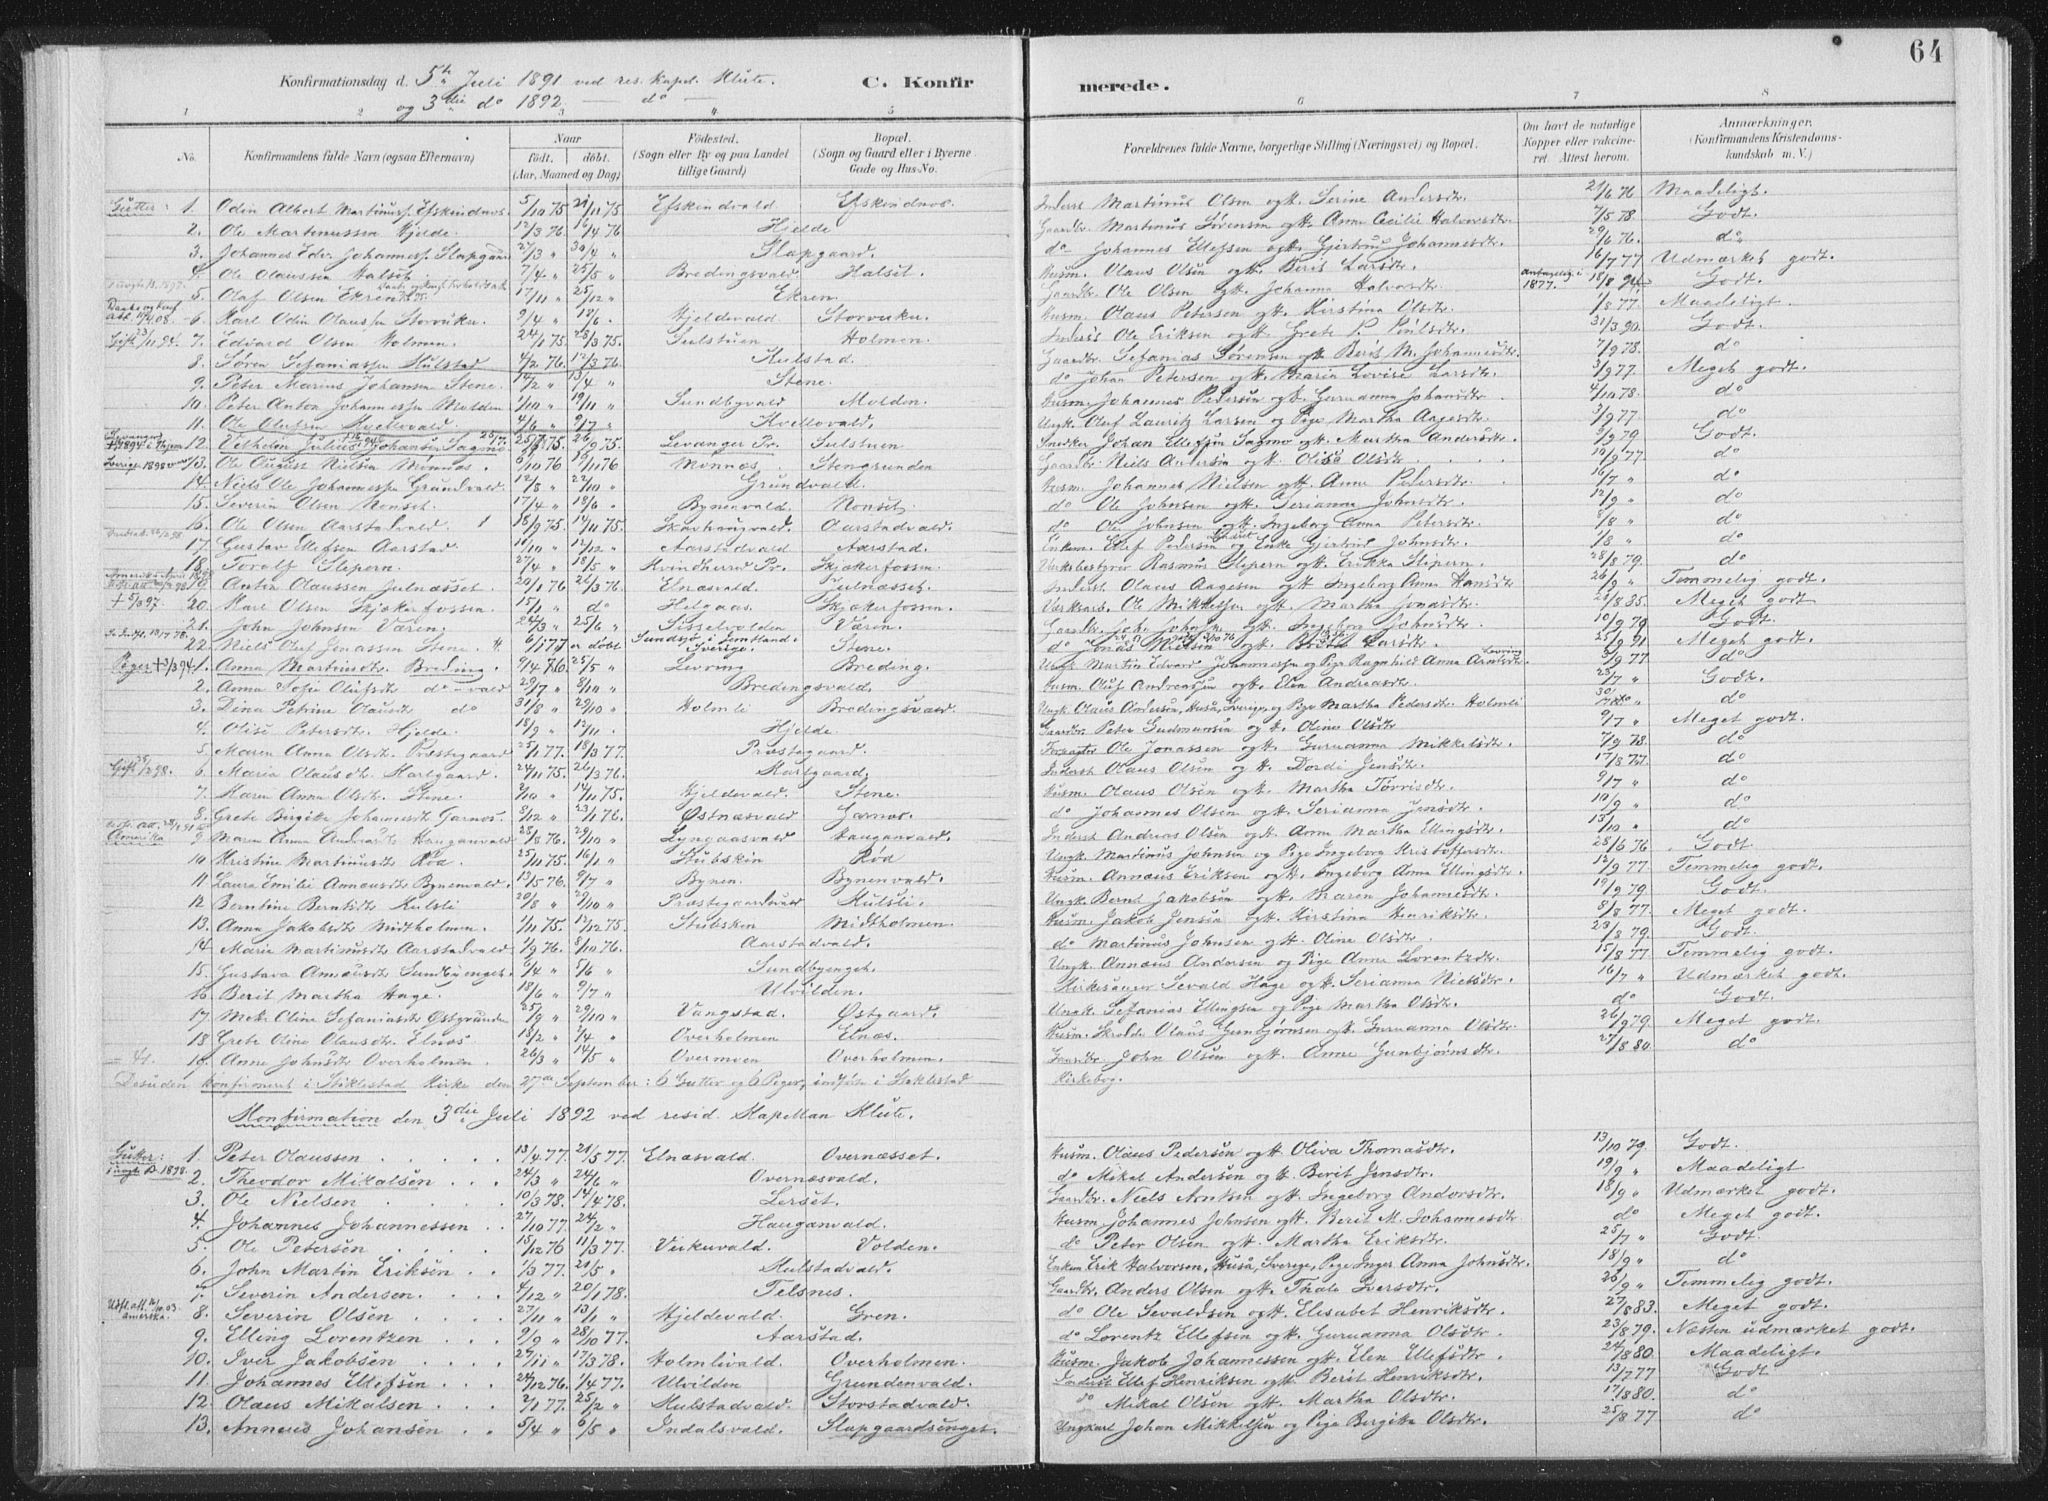 64
Konfirmationsdag d. 5te Juli 1891 ved res. kapel. Klüte.
og 3die do 1892 — do —
C. Konfirmerede.
1 2 3 4 5 6 7 8
No. Konfirmandens fulde Navn (ogsaa Efternavn) Naar født. døbt. (Aar, Maaned og Dag) Fødested. (Sogn eller By og paa Landet tillige Gaard) Bopæl. (Sogn og Gaard eller i Byerne Gade og Hus-No. Forældrenes fulde Navne, borgerlige Stilling (Næringsvei) og Bopæl. Om havt de naturlige Kopper eller vakcineret. Attest herom. Anmærkninger. (Konfirmandens Kristendomskundskab m. V.)
Gutter: 1. Odin Albert Martinussn Efskindmos 5/10 75 21/11 75 Efskindvald Efskindmos. Inderst Martinus Olsen og H. Serine Andersdtr. 21/6 76 Maadeligt.
2. Ole Martinussen Hjelde. 12/3 76 16/4 76 Hjelde Gaardbr. Martinus Sørensen og H. Anne Cecilie Halvorsdtr. 7/5 78. Godt.
3. Johannes Edv. Johannessn Slapgaard 27/3 " 30/4 " Slapgaard. do Johannes Ellefsen og H. Gjertrud Johannesdtr. 29/6 76. do
4. Ole Olaussen Halset 7/4 " 25/5 " Bredingsvald Halset. Husm. Olaus Olsen og H. Berit Larsdtr. 16/7 77 Udmærket godt.
5. Olaf Olsen Ekren 17/11 " 25/12 " Ekren. Gaardbr. Ole Olsen og H. Johanna Halvorsdtr. antagelig i 1877. 18/8 94 Godt.
6. Karl Odin Olaussn Storvuku. 9/4 " 12/6 " Hjeldevald Storvuku. Husm. Olaus Petersen og H. Kirstina Olsdtr. 1/8 77. Maadeligt.
Gift 23/11 94. 7. Edvard Olsen Holmen. 24/1 75 28/3 75. Sulstuen Holmen. Inderst Ole Eriksen og H. Grete P. Pålsdtr. 31/3 90. Godt.
8. Søren Sefaniassn Kulstad 4/2 76. 12/3 76. Kulstad. Gaardbr. Sefanias Sørensen og H. Berit M. Johannesdtr. 7/9 78. do
9. Peter Marius Johansen Stene. 14/2 " 13/4 " Stene. do Johan Petersen og H. Maria Lovise Larsdtr. 3/9 77. Meget godt.
10. Peter Anton Johannessn Molden 1/10 " 19/11 " Sundbyvald Molden. Husm. Johannes Pedersen og H. Guruanna Johansdtr. 4/10 78. do
11. Ole Olufsen Kvellovald. 4/6 " 9/7 " Kvellovald. Ungk. Oluf Lauritz Larsen og Pige Martha Aagesdtr. 3/9 77. do
12. Vilhelm Julius Johansen Sagmo 25/7 75. 26/9 75. Levanger Pr. Sulstuen Snedker Johan Ellefsen Sagmo og H. Martha Andersdtr. 9/9 79 Godt.
13. Ole August Nielsen Mønnes. 6/10 76 19/11 76 Mønnes Stengrunden Gaardbr. Niels Andersen og H. Olise Olsdtr. 10/9 77 do
14. Niels Ole Johannessn Grundvald. 12/8 " 22/10 " Grundvald. Husm. Johannes Nielsen og H. Anne Pedersdtr. 16/7 " do
15. Severin Olsen Monset. 17/4 " 18/6 " Bynenvald. Monset. do Ole Johnsen og H. Serianna Johnsdtr. 12/9 " do
16. Ole Olsen Aarstadvald. 18/9 75. 14/11 75. Skavhaugvald. Aarstadvald. do Ole Johnsen og H. Ingeborg Anna Petersdtr. 8/8 " do
17. Gustav Ellefsen Aarstad. 10/10 " 12/12 " Aarstadvald Aarstad. Enkem. Ellef Pedersen og Enke Gjertrud Johnsdtr. 1/8 " do
18. Toralf Stipern. 27/4 " 18/5 " Kvindherred Pr. Skjækerfossen. Verksbestyrer Rasmus Stipern og H. Erikka Stipern. 28/8 79. do
19. Anton Olaussen Julnæsset. 20/1 76 26/3 76. Elnæsvald. Julnæsset. Inderst Olaus Aagesen og H. Ingeborg Anna Hansdtr. 26/9 " Temmelig godt.
+ 5/3 97 20. Karl Olsen Skjækerfossen. 15/1 " do Helgaas. Skjækerfossen. Verksarb. Ole Mikkelsen og H. Martha Jonasdtr. 26/8 85. Meget godt
21. John Johnsen Væren. 24/3 " 25/6 " Sisselvolden Væren. Gaardbr. Joh. Johnsn. og H. Ingebor Johnsdtr. 10/9 79 Godt.
22. Niels Oluf Jonassen Stene. 6/1 77 er døbt Sundsjø i Jemtland i Sverige. Stene. do Jonas Nielsen og H. Brita Larsdtr. 25/9 91 Meget godt.
Piger + 3/3 94. 1. Anna Martinusdtr. Breding. 9/4 76. 25/5 " Levring Breding. Ungk. Martin Edvard Johannessen og Pige Ragnhild Anna Arntsdtr. Levring 3/9 77 do
2. Anna Sofie Olufsdtr do - vald 29/7 " 8/10 " Bredingsvald. Husm. Oluf Andreassen og H. Elen Andreasdtr. 23/7 " Godt.
3. Dina Petrine Olausdtr do 31/8 " 29/10 " Holmli Bredingsvald. Ungk. Olaus Andersen, Huså, Sverige, og Pige Martha Pedersdtr. Holmli do
4. Olise Petersdtr. Hjelde. 18/9 " 12/11 " Hjelde. Gaardbr. Peter Gudmunsen og H. Oline Olsdtr. 9/7 " Meget godt.
5. Maren Anna Olsdtr. Præstegaard 25/1 77. 18/3 77. Præstegaard. Forpagter Ole Jonassen og H. Guruanna Mikkelsdtr. 7/9 78. do
6. Maria Olausdtr. Karlgaard. 24/11 75. 26/3 76. Karlgaard. Inderst Olaus Olsen og H. Dordi Jensdtr. 17/8 77. do
7. Karen Anna Olsdtr. Stene. 2/10 " 14/11 75. Hjeldevald. Stene. Husm. Olaus Olsen og H. Martha Tørrisdtr. 9/7 " do
8. Grete Birgitte Johannesdtr Garnæs. 8/12 " 23/1 76. Østnæsvald Garnæs. do Johannes Olsen og H. Serianna Jensdtr. 10/9 " do
Amerika 9. Maren Anna Andreasdtr Hauganvald 28/8 76. 29/10 " Lyngaasvald Hauganvald. Inderst Andreas Olsen og H. Anne Martha Ellingsdtr. 13/10 " do
10 Kristine Martinusdtr Rød 25/10 75 16/1 " Stubskin Rød Ungk. Martinus Johnsen og Pige Ingeborg Kristoffersdtr. 28/6 76 Godt
11 Laura Emilie Annæusdtr Bynenvald. 13/5 76. 9/7 " Bynen. Bynenvald. Husm. Annæus Eriksen og H. Ingeborg Anna Ellingsdtr. 12/9 77. Temmelig godt.
12 Berntine Berntsdtr Kulsli 20/8 " 29/10 " Præstegaardsvald Kulsli. Ungk. Bernt Jakobsen og Maren Johannesdtr. 19/9 79. Godt.
13. Anna Jakobsdtr Midtholmen. 1/11 75. 12/12 75. Stubsken Midtholmen. Husm. Jakob Jensen og H. Kirstina Henriksdtr. 8/8 77. Meget godt.
14. Marie Martinusdtr Aarstadvald 1/9 76. 8/10 76. Aarstadvald. do Martinus Johnsen og H. Oline Olsdtr. 23/8 79. Godt.
15. Gustava Annæusdtr Sundbyenget. 6/4 " 5/6 " Sundbyenget. Ungk. Annæus Andersen og Pige Anne Lorentzdtr. 15/8 77 Temmelig godt.
16 Berit Martha Hage. 18/6 " 9/7 " Ulvilden. Kirkesanger Sevald Hage og H. Serianna Nielsdtr 16/7 " Udmærket godt.
17 Mek. Oline Sefaniasdtr Østgrunden 25/9 " 29/10 " Vangstad. Østgaard. Ungk. Sefanias Ellingsen og Pige Martha Olsdtr. do Godt.
18 Grete Oline Olausdtr. Elnæs. 18/2 " 2/4 " Overholmen Elnæs. Husm. Skrædd. Olaus Gunbjørnsen og H. Guruanna Olsdtr. 26/9 79. Meget godt.
19. Anne Johnsdtr Overholmen. 26/3 " 14/5 " Overmoen Overholmen. Gaardbr. John Olsen og H. Anne Gunbjørnsdtr. 27/8 80. do
Desuden konfirmeret i Stiklestad Kirke den 27de September: 6 Gutter og 6 Piger, indført i Stiklestad Kirkebog.
Konfirmation den 3die Juli 1892 ved resid. Kapellan Klüte.
Gutter: 1. Peter Olaussen 13/4 77. 21/5 77. Elnæsvald. Overnæsset. Husm. Olaus Pedersen og H. Oliva Thomasdtr. 13/10 79. Godt.
2. Theodor Mikalsen 24/3 " 24/6 " Overnæsvald. do Mikal Andersen og H. Berit Jensdtr. 19/9 " Maadeligt
3. Ole Nielsen 10/3 78. 14/4 78. Lerset. Gaardbr. Niels Arntsen og H. Ingeborg Andorsdtr. 18/9 " Udmærket godt.
4. Johannes Johannessen 27/10 77. 24/2 " Hauganvald. Husm. Johannes Johnsen og H. Berit M. Johannesdtr do Meget godt.
5. Ole Petersen 15/12 76 11/3 77. Virkuvald. Volden. do Peter Olsen og H. Martha Eriksdtr. 25/7 " Godt.
6. John Martin Eriksen 1/3 77. 20/5 " Kulstadvald. Enkem. Erik Halvorsen, Huså, Sverige, Pige Inger Anna Johnsdtr. 18/9 " do
7. Severin Andersen 4/12 " 20/1 78. Telsnes. Gaardbr. Anders Olsen og H. Thale Iversdtr. 26/9 " Temmelig godt.
Amerika. 8. Severin Olsen 27/11 " 13/1 " Hjeldevald. Gren. do Ole Sevaldsen og H. Elisabet Henriksdtr. 27/8 83. Meget godt.
9. Elling Lorentzen 9/9 " 28/10 77. Aarstad. do Lorentz Ellefsen og H. Guruanna Olsdtr. 23/8 79. Næsten udmærket godt.
10. Iver Jakobsen 27/11 " 17/3 78. Holmlivald. Overholmen. Husm. Jakob Johannessen og H. Elen Ellefsdtr. 24/8 80. Maadeligt.
11. Johannes Ellefsen 24/12 76. 1/4 77. Ulvilden Grundenvald. Inderst Ellef Henriksen og H. Berit Henriksdtr. 13/7 77 Godt
12. Olaus Mikalsen 2/1 77. 25/2 " Kulstadvald. Storstadvald. do Mikal Olsen og H. Martha Olsdtr. 17/8 80. do
13. Annæus Johansen 5/4 " 6/5 " Indalsvald. Slapgaardsenget. Ungkarl Johan Mikkelsen og Pige Bergitta Olsdtr. 25/8 77 do